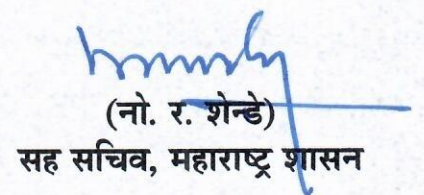 (नो. र. शेन्डे)
सह सचिव, महाराष्ट्र शासन